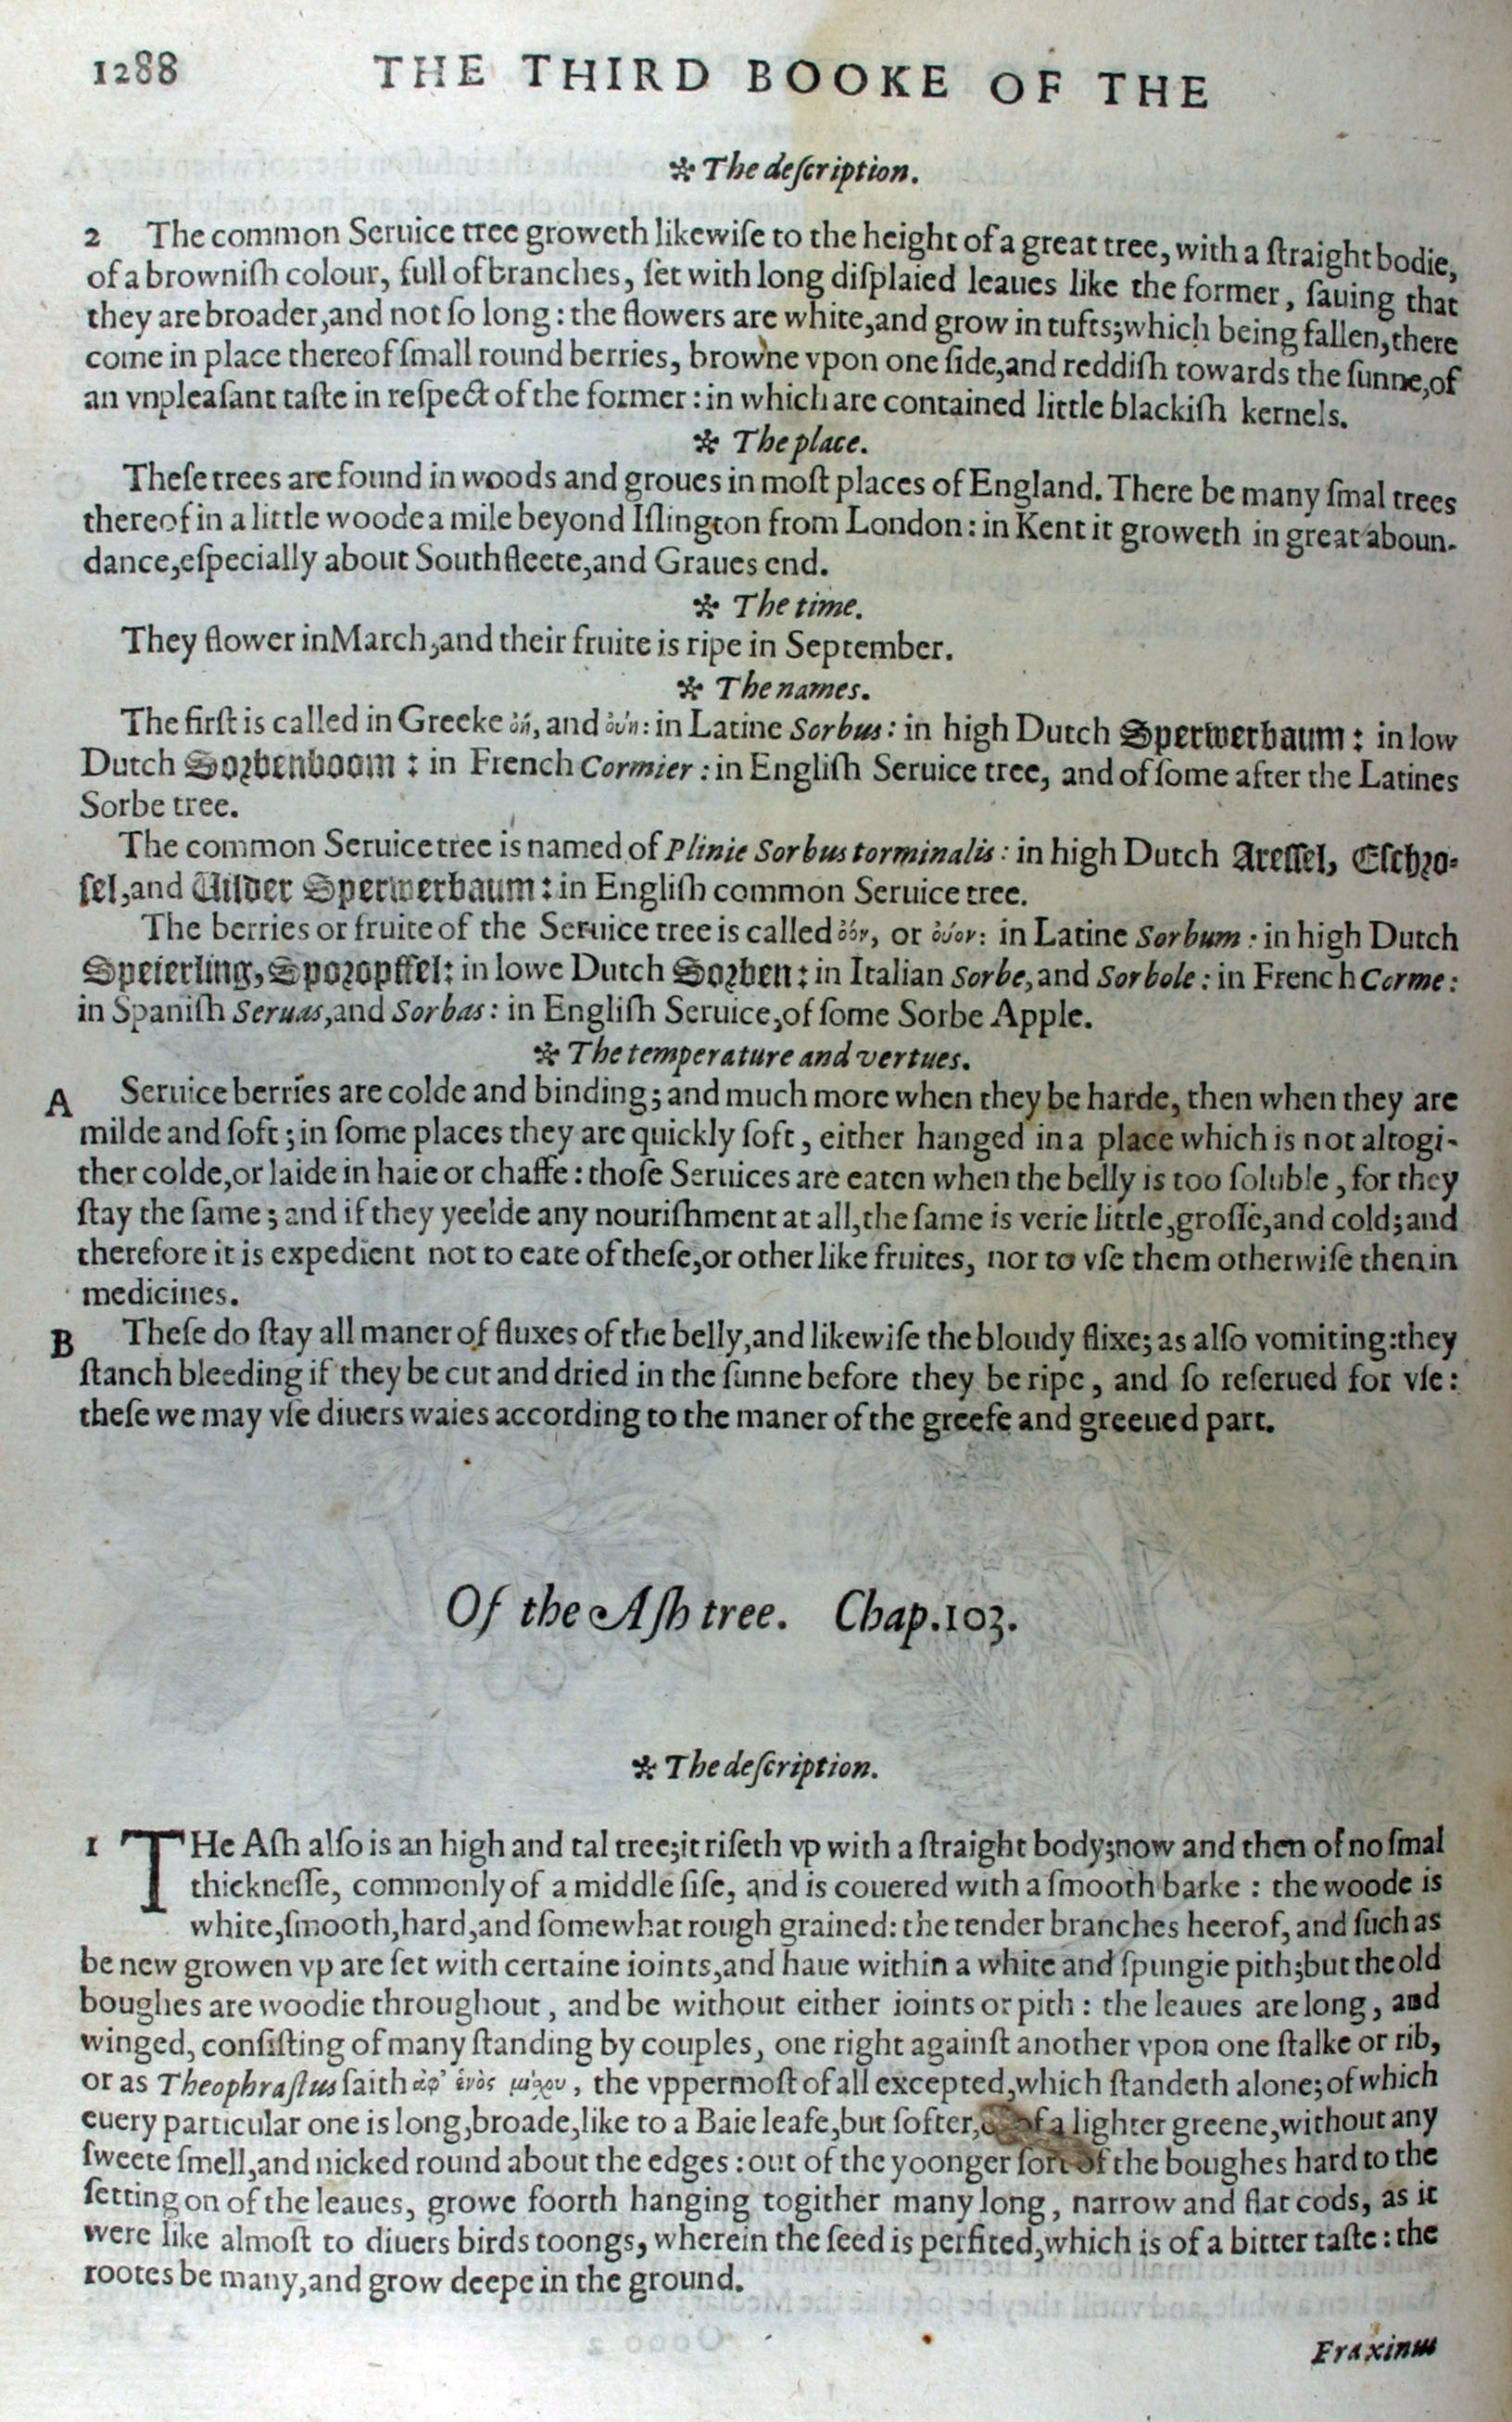 1288 THE THIRD BOOKE OF THE
✲ The deſcription.
2 The common Seruice tree groweth likewiſe to the height of a great tree, with a ſtraight bodie,
of a browniſh colour, full of branches, ſet with long diſplaied leaues like the former, ſauing that
they are broader, and not ſo long: the flowers are white, and grow in tufts; which being fallen, there
come in place thereof ſmall round berries, browne vpon one ſide, and reddiſh towards the ſunne, of
an vnpleaſant taſte in reſpect of the former: in which are contained little blackiſh kernels.
✲ The place.
Theſe trees are found in woods and groues in moſt places of England. There be many ſmal trees
thereof in a little woode a mile beyond Iſlington from London: in Kent it groweth in great aboun-
dance, eſpecially about Southfleete, and Graues end.
✲ The time.
They flower in March, and their fruite is ripe in September.
✲ The names.
The firſt is called in Greeke ὀή, and ὀύη: in Latine Sorbus: in high Dutch Sperwerbaum: in low
Dutch Sorbenboom: in French Cormier: in Engliſh Seruice tree, and of ſome after the Latines
Sorbe tree.
The common Seruice tree is named of Plinie Sorbus torminalis: in high Dutch Areſſel, Eſchro-
ſel, and Wilder Sperwerbaum: in Engliſh common Seruice tree.
The berries or fruite of the Seruice tree is called ὀόν, or ὀύον: in Latine Sorbum: in high Dutch
Speierling, Sporopffel: in lowe Dutch Sorben: in Italian Sorbe, and Sorbole: in French Corme:
in Spaniſh Seruas, and Sorbas: in Engliſh Seruice, of ſome Sorbe Apple.
✲ The temperature and vertues.
A Seruice berries are colde and binding; and much more when they be harde, then when they are
milde and ſoft; in ſome places they are quickly ſoft, either hanged in a place which is not altogi-
ther colde, or laide in haie or chaffe: thoſe Seruices are eaten when the belly is too ſoluble, for they
ſtay the ſame; and if they yeelde any nouriſhment at all, the ſame is verie little, groſſe, and cold; and
therefore it is expedient not to eate of theſe, or other like fruites, nor to vſe them otherwiſe then in
medicines.
B Theſe do ſtay all maner of fluxes of the belly, and likewiſe the bloudy flixe; as alſo vomiting: they
ſtanch bleeding if they be cut and dried in the ſunne before they be ripe, and ſo reſerued for vſe:
theſe we may vſe diuers waies according to the maner of the greefe and greeued part.
Of the Aſh tree. Chap. 103.
✲ The deſcription.
1 THe Aſh alſo is an high and tal tree; it riſeth vp with a ſtraight body; now and then of no ſmal
thickneſſe, commonly of a middle ſiſe, and is couered with a ſmooth barke: the woode is
white, ſmooth, hard, and ſomewhat rough grained: the tender branches heerof, and ſuch as
be new growen vp are ſet with certaine ioints, and haue within a white and ſpungie pith; but the old
boughes are woodie throughout, and be without either ioints or pith: the leaues are long, and
winged, conſiſting of many ſtanding by couples, one right againſt another vpon one ſtalke or rib,
or as Theophraſtus ſaith ἀφ' ἑνὸς μίσχου, the vppermoſt of all excepted, which ſtandeth alone; of which
euery particular one is long, broade, like to a Baie leafe, but ſofter, of a lighter greene, without any
ſweete ſmell, and nicked round about the edges: out of the yoonger ſort of the boughes hard to the
ſetting on of the leaues, growe foorth hanging togither many long, narrow and flat cods, as it
were like almoſt to diuers birds toongs, wherein the ſeed is perfited, which is of a bitter taſte: the
rootes be many, and grow deepe in the ground.
Fraxinus